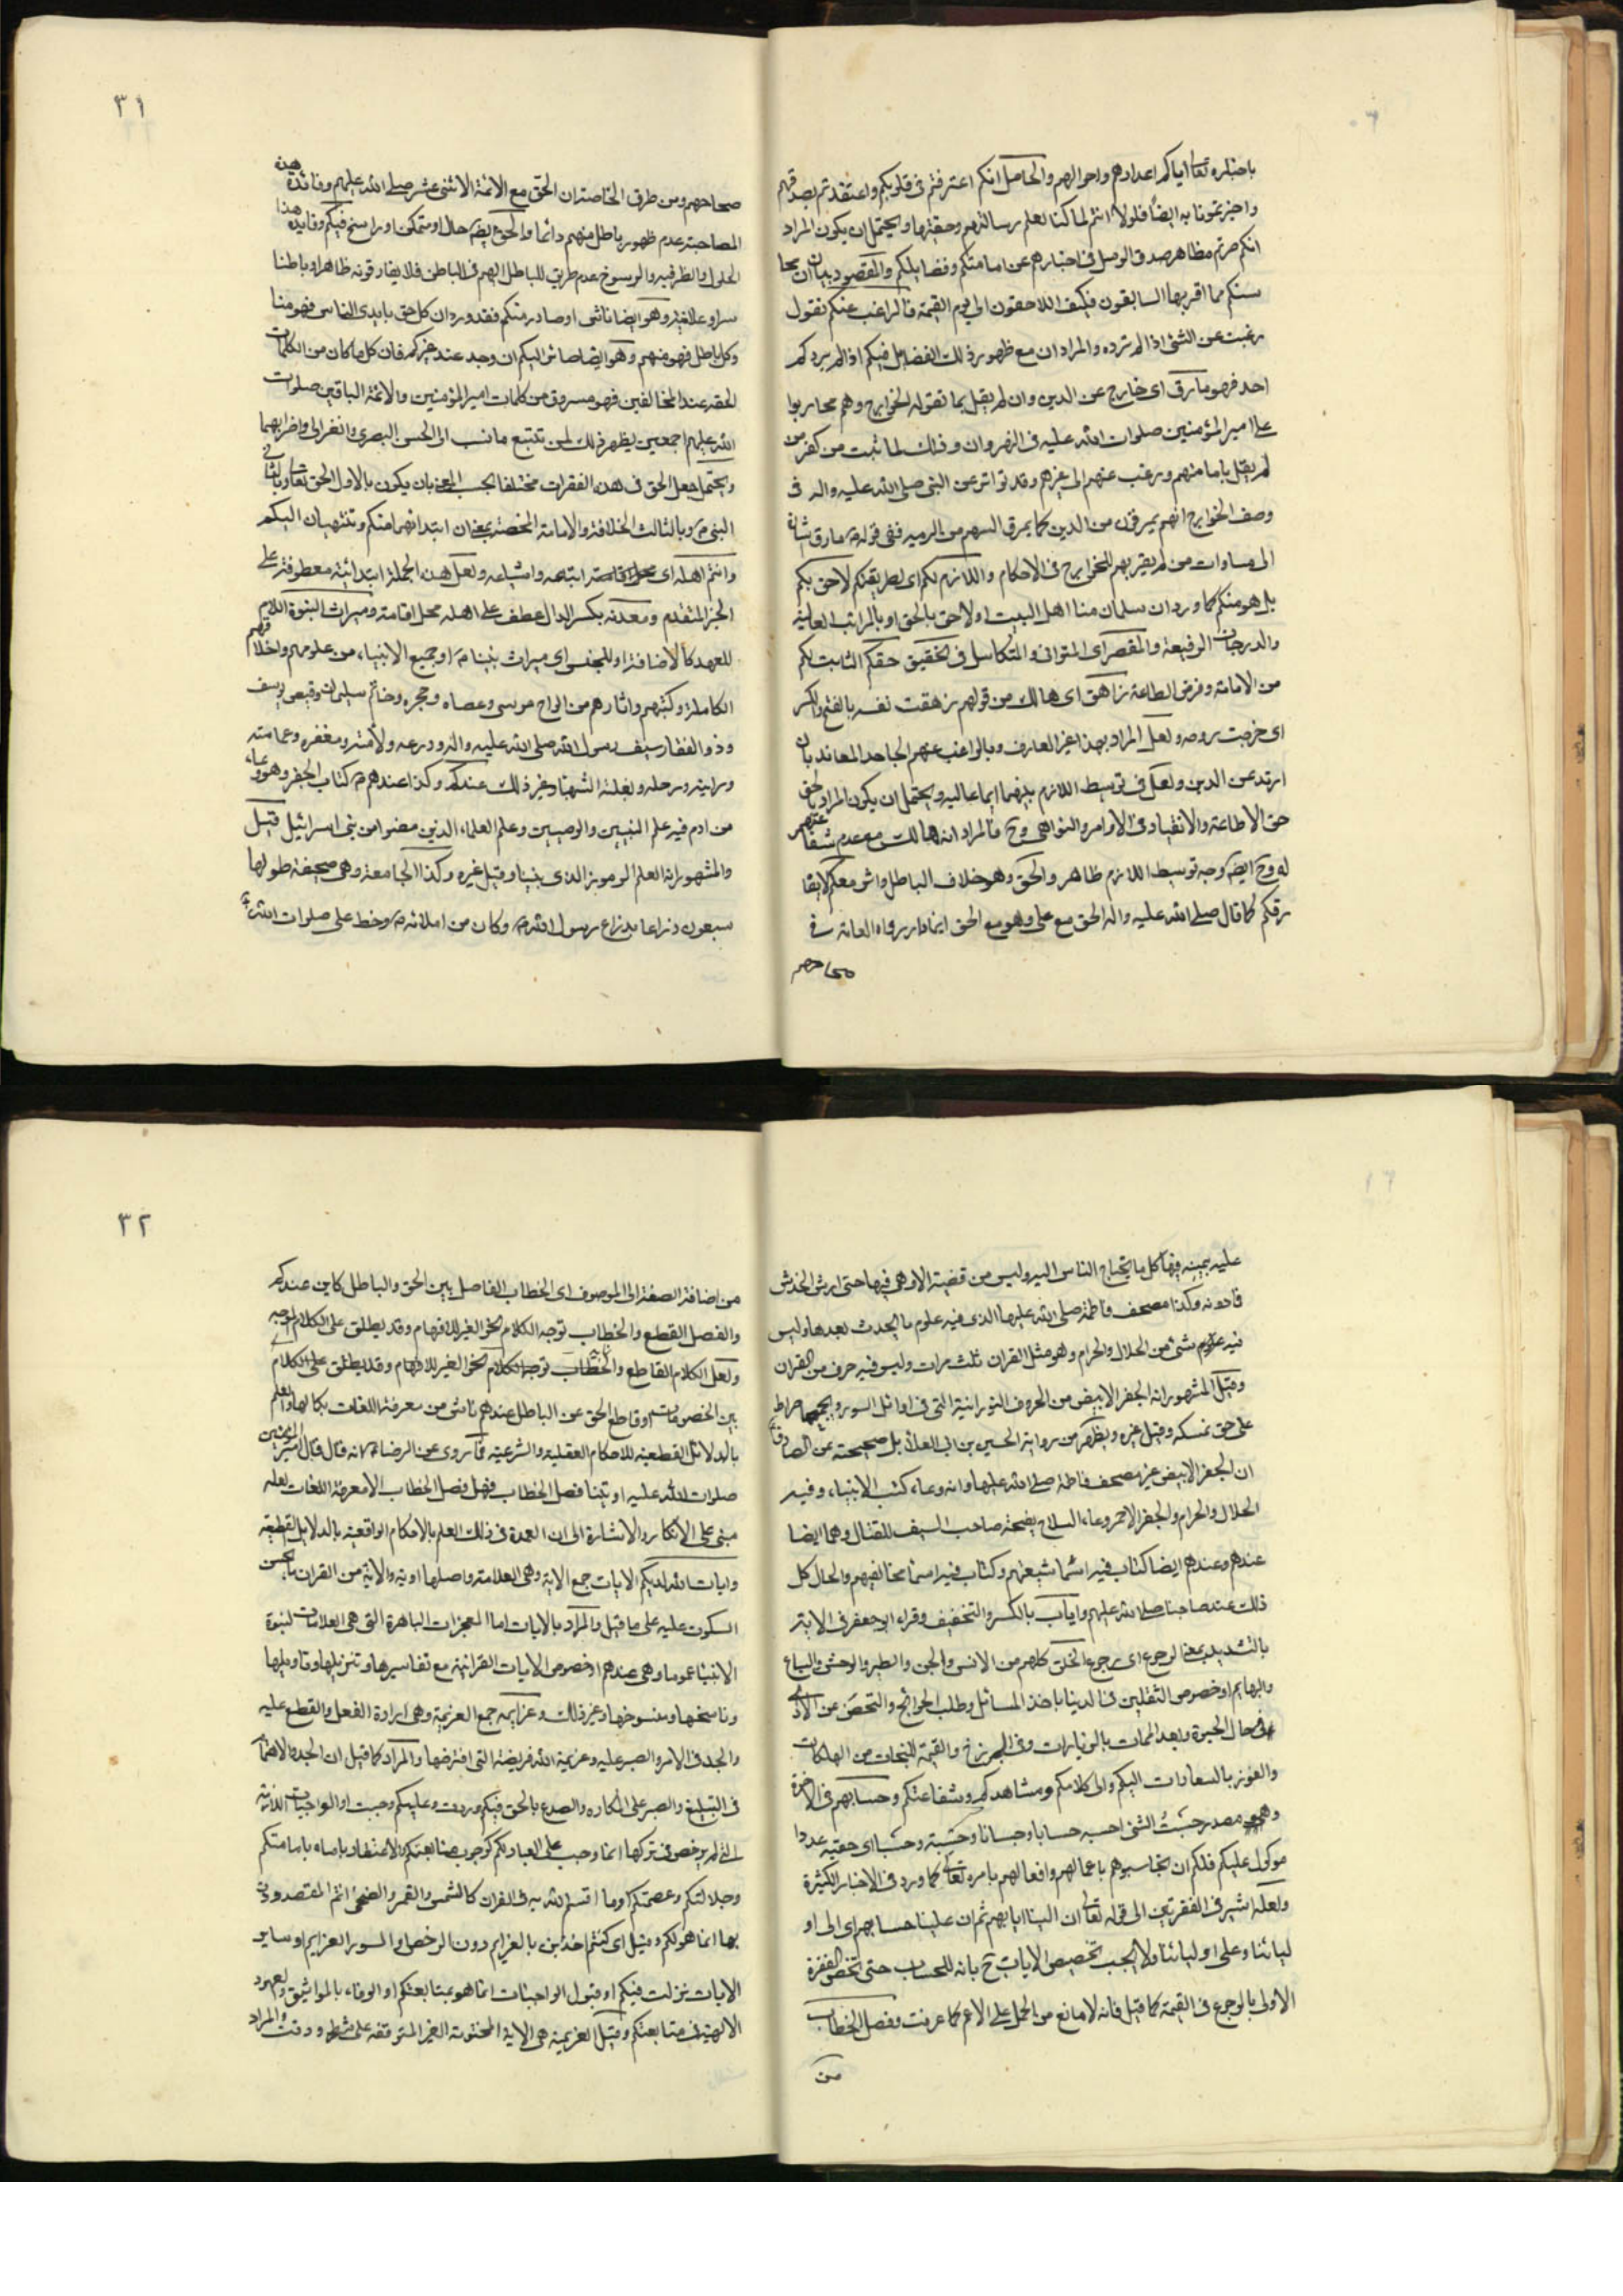 باخباره تعا اياكم اعدادهم واحوالهم والحاصل انكم اعترفتم فى قلوبكم واعتقدتم بصدقهم
واخبرتمونا به ايضا فلولا انتم لما كنا نعلم رسالتهم وحقيتها ويحتمل ان يكون المراد
انكم صرتم مظاهر صدق الرسل فى اخبارهم عن امامتكم وفضايلكم والمقصود بيان ان
سنكم مما اقر بها السابقون فكيف اللاحقون الى يوم القيمة فالراغب عنكم نقول
رغبت عن الشئ اذا لم ترده والمراد ان مع ظهور ذلك الفضايل فيكم اذا لم يردكم
احد فهو مارق اى خارج عن الدين وان لم يقبل بما تقوله الخوارج وهم محاربوا
على امير المؤمنين صلوات الله عليه فى النهروان وذلك لما ثبت من كفر من
لم يقبل بامامتهم ورغب عنهم الى غيرهم وقد تواتر عن النبى صلى الله عليه واله فى
وصف الخوارج انهم يمرقون من الدين كما يمرق السهم من الرميه ففى قوله مارق اشارة
الى مساوات من لم يقر بهم للخوارج فى الاحكام واللازم لكم اى لطريقتكم لاحق بكم
بل هو منكم كما ورد ان سلمان منا اهل البيت اولاحق بالحق او بالمراتب العالية
والدرجات الرفيعة والمقصر اى المتوانى والمتكاسل فى تحقيق حقكم الثابت لكم
من الامامة وفرض الطاعة زاهق اى هالك من قولهم زهقت نفسه بالفتح والكسر
اى خرجت روحه ولعل المراد بهذا غير العارف وبالراغب عنهم الجاحد المعاند بان
ارتد عن الدين ولعل فى توسيط اللازم بينهما ايماء اليه ويحتمل ان يكون المراد بالحق
حق الاطاعة والانقياد فى الاوامر والنواهى وح فالمراد انه هالك مع عدم شفاعتهم
له وح ايضه وجه توسيط اللازم ظاهر والحق وهو خلاف الباطل واش معكم لايفا
رقكم كما قال صلى الله عليه واله الحق مع على وهو مع الحق اينما دار رواه العامة فى
صحاحهم
٣١
صحاحهم ومن طرق الخاصة ان الحق مع الائمة الاثنى عشر صلى الله عليهم وفائدة هذه
المصاحبة عدم ظهور باطل منهم دائما والحق ايضه حال او متمكن او راسخ فيكم وفايدة هذا
الحلول والظرفية والرسوخ عدم طريق للباطل اليهم فى الباطن فلا يفارقونه ظاهرا وباطنا
سرا وعلانية وهو ايضا ناشئ او صادر منكم فقد ورد ان كل حق بايدى الناس فهو منا
وكل باطل فهو منهم وهو ايضا صائر اليكم ان وجد عند غيركم فان كل ما كان من الكلمات
الحقه عند المخالفين فهو مسروق من كلمات امير المؤمنين والائمة الباقين صلوات
الله عليهم اجمعين يظهر ذلك لمن تتبع ما نسب الى الحسن البصرى والغزالى واضرابهما
ويحتمل جعل الحق فى هذه الفقرات مختلفا بحسب المعنى بان يكون بالاول الحق تعا وبالثانى
النبى ص وبالثالث الخلافة والامامة المختصة بمعنى ان ابتدائهما منكم وتنتهيان اليكم
وانتم اهله اى محل اقامته واتباعه واشياعه ولعل هذه الجملة ابتدائية معطوفة على
الخبر المتقدم ومعدنه بكسر الدال عطف على اهله محل اقامته وميراث النبوة اللام
للعهد كالاضافة او للجنس اى ميراث نبينا ص او جميع الانبياء من علومهم واخلاقهم
الكاملة وكتبهم واثارهم من الواح موسى وعصاه وحجره وخاتم سليمان وقميص يوسف
وذو الفقار سيف رسول الله صلى الله عليه واله ودرعه ولامته ومغفره وعمامته
ورايته ورحله وبغلته الشهباء وغير ذلك عندكم وكذا عندهم كتاب الجفر وهو وعاء
من ادم فيه علم النبيين والوصيين وعلم العلماء الذين مضوا من بنى اسرائيل قيل
والمشهور انه العلم المرموز الذى بنينا وقيل غيره وكذا الجامعة وهى صحيفة طولها
سبعون ذراعا بذراع رسول الله ص وكان من املائه ص وخط على صلوات الله
عليه بيمينه فيها كل ما يحتاج الناس اليه وليس من قضية الا وهى فيها حتى ارش الخدش
فادونه وكذا مصحف فاطمة صلى الله عليها الذى فيه علوم ما يحدث بعدها وليس
فيه شئ من الحلال والحرام وهو مثل القران ثلث مرات وليس فيه حرف من القران
وقيل المشهور انه الجفر الابيض من الحروف النورانية التى فى اوائل السور ويجمعها صراط
على حق نمسكه وقيل غيره ويظهر من رواية الحسين بن ابى العلا بل صحيحته عن الصادق
ان الجفر الابيض غير مصحف فاطمة صلى الله عليها وانه وعاء كتب الانبياء وفيه
الحلال والحرام والجفر الاحمر وعاء السلاح يفتحه صاحب السيف للقتال وهما ايضا
عندهم وعندهم ايضا كتاب فيه اسماء شيعتهم وكتاب فيه اسماء مخالفيهم والحال كل
ذلك عند صاحبنا صلى الله عليهم واياب بالكسر والتخفيف وقراء ابو جعفر فى الايتر
بالتشديد بمعنى الرجوع اى رجوع الخلق كلهم من الانس والجن والطير والوحش والسباع
والبهايم او خصوص الثقلين فى الدنيا باخذ المسائل وطلب الحوائج والتحصن عن الاذى
فى حال الحيرة وبعد الممات بالزيارات وفى البرزخ والقيمة للنجات من الهلكات
والفوز بالسعادات اليكم والى كلامكم ومشاهدكم وشفاعتكم وحسابهم فى الاخرة
وهو مصدر حسبت الشئ احسبه حسابا وحسبانا وحسبة وحسبا اى حققته عددا
موكول عليكم فلكم ان تحاسبوهم باعمالهم وافعالهم بامره تعالى كما ورد فى الاخبار الكثيرة
ولعله اشير فى الفقرتين الى قوله تعالى ان الينا ايابهم ثم ان علينا حسابهم اى الى او
ليائنا وعلى اوليائنا ولا يجب تخصيص الايات ح بانه للحساب حتى تختص الفقرة
الاولى بالرجوع فى القيمة كما قيل فانه لا مانع من الحمل على الاعم كما عرفت وفصل الخطاب
من
٣٢
من اضافة الصفة الى الموصوف اى الخطاب الفاصل بين الحق والباطل كاين عندكم
والفصل القطع والخطاب توجه الكلام نحو الغير للافهام وقد يطلق على الكلام الموجه
ولعل الكلام القاطع والخطاب توجه الكلام نحو الغير للافهام وقد يطلق على الكلام
بين الخصومات او قاطع الحق عن الباطل عندهم ناش من معرفة اللغات بكمالها والعلم
بالدلائل القطعية للاحكام العقلية والشرعية فما روى عن الرضا انه قال قال امير المؤمنين
صلوات الله عليه اوتينا فصل الخطاب فهل فصل الخطاب الا معرفة اللغات لعله
مبنى على الانكار والاشارة الى ان العمدة فى ذلك العلم بالاحكام الواقعية بالدلايل القطعية
وايات الله لديكم الايات جمع الاية وهى العلامة واصلها اوية والاية من القران ما يحسن
السكوت عليه على ما قيل والمراد بالايات اما المعجزات الباهرة التى هى العلامات لنبوة
الانبياء عموما وهى عندهم او خصوص الايات القرانية مع تفاسيرها وتنزيلها وتاويلها
وناسخها ومنسوخها وغير ذلك وعزايمه جمع العزيمة وهى ارادة الفعل والقطع عليه
والجد فى الامر والصبر عليه وعزيمة الله فريضته التى افترضها والمراد كما قيل ان الجد والاهتمام
فى التبليغ والصبر على المكاره والصدع بالحق فيكم وردت وعليكم وجبت او الواجبات اللازمة
التى لم يرخص فى تركها انما وجب على العباد لكم كوجوب متابعتكم والاعتقاد بامامتكم
وجلالتكم وعصمتكم او ما اقسم الله به فى القران كالشمس والقمر والضحى انتم المقصودون
بها انما هو لكم وقيل اى كنتم اخذين بالعزايم دون الرخص او السور العزايم او ساير
الايات نزلت فيكم او قبول الواجبات انما هو بمتابعتكم او الوفاء بالمواثيق والعهود
الالهية فى متابعتكم وقيل العزيمة هى الاية المحتومة الغير المتوقفة على شرط ووقت والمراد